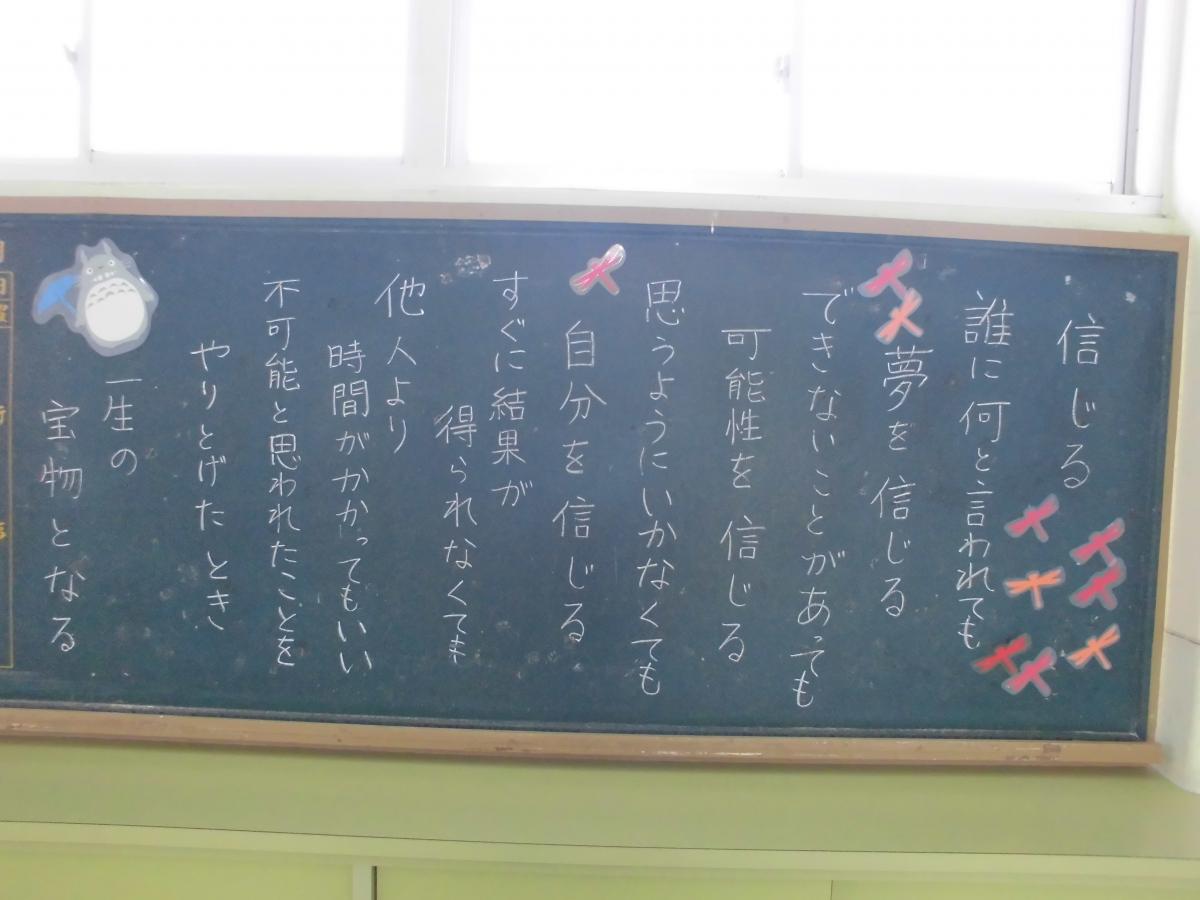 信じる
誰に何と言われても
夢を信じる
できないことがあっても
可能性を信じる
思うようにいかなくても
自分を信じる
すぐに結果が
得られなくても
他人より
時間がかかってもいい
不可能と思われたことを
やりとげたとき
一生の
宝物となる